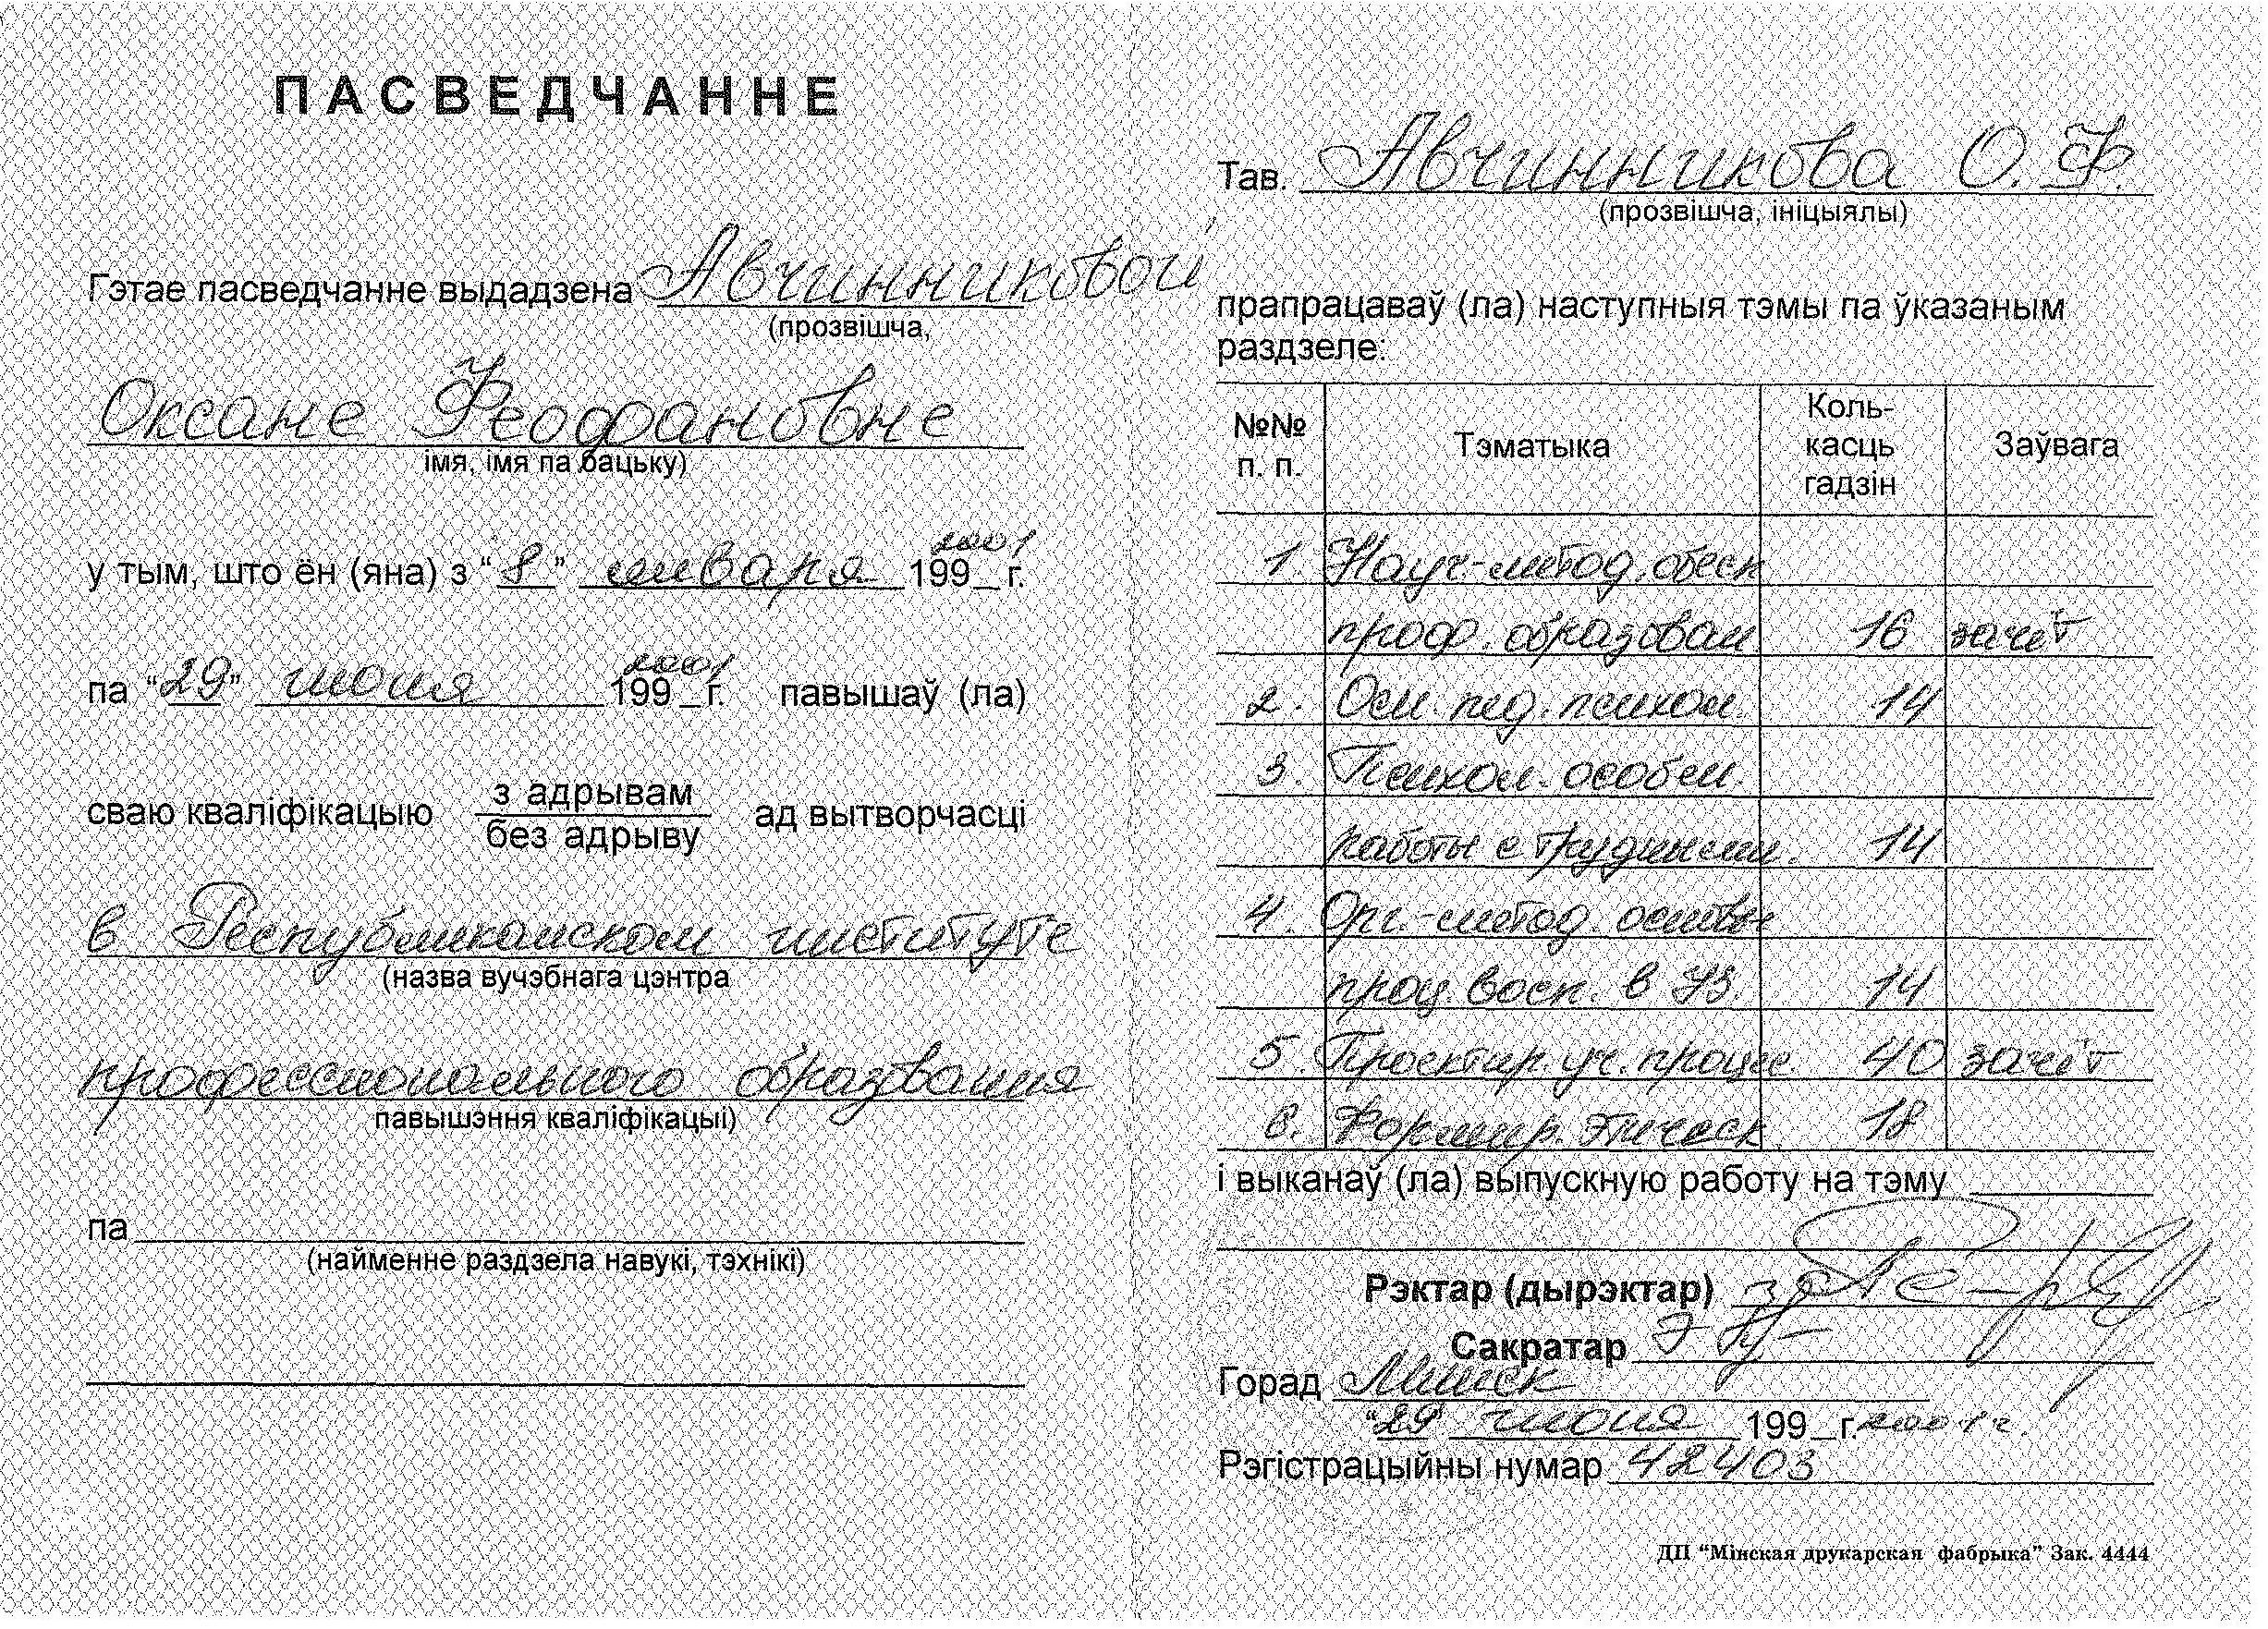 ПАСВЕДЧАННЕ
Гэтае пасведчанне выдадзена Авчинниковой
(прозвішча,
Оксане Феофановне
імя, імя па бацьку)
у тым, што ён (яна) з “8” января 199_г. 2001
па “29” июня 199_г. 2001 павышаў (ла)
сваю кваліфікацыю з адрывам ад вытворчасці
без адрыву
в Республиканском институте
(назва вучэбнага цэнтра
профессионального образования
павышэння кваліфікацыі)
па
(найменне раздзела навукі, тэхнікі)
Тав. Авчинникова О. Ф.
(прозвішча, ініцыялы)
прапрацаваў (ла) наступныя тэмы па ўказаным
раздзеле:
№№ п. п. Тэматыка Коль-касць гадзін Заўвага
1 Науч-метод. обесп
проф. образован 16 зачёт
2. Осн. пед. психол. 14
3. Психол. особен.
работы с трудными. 14
4. Орг.-метод. основы
проц. восп. в УЗ. 14
5. Проектир. уч. процес. 40 зачёт
6. Формир. этическ. 18
і выканаў (ла) выпускную работу на тэму
Рэктар (дырэктар)
Сакратар
Горад Минск
“29” июня 199_г. 2001 г.
Рэгістрацыйны нумар 42403
ДП “Мінская друкарская фабрыка” Зак. 4444